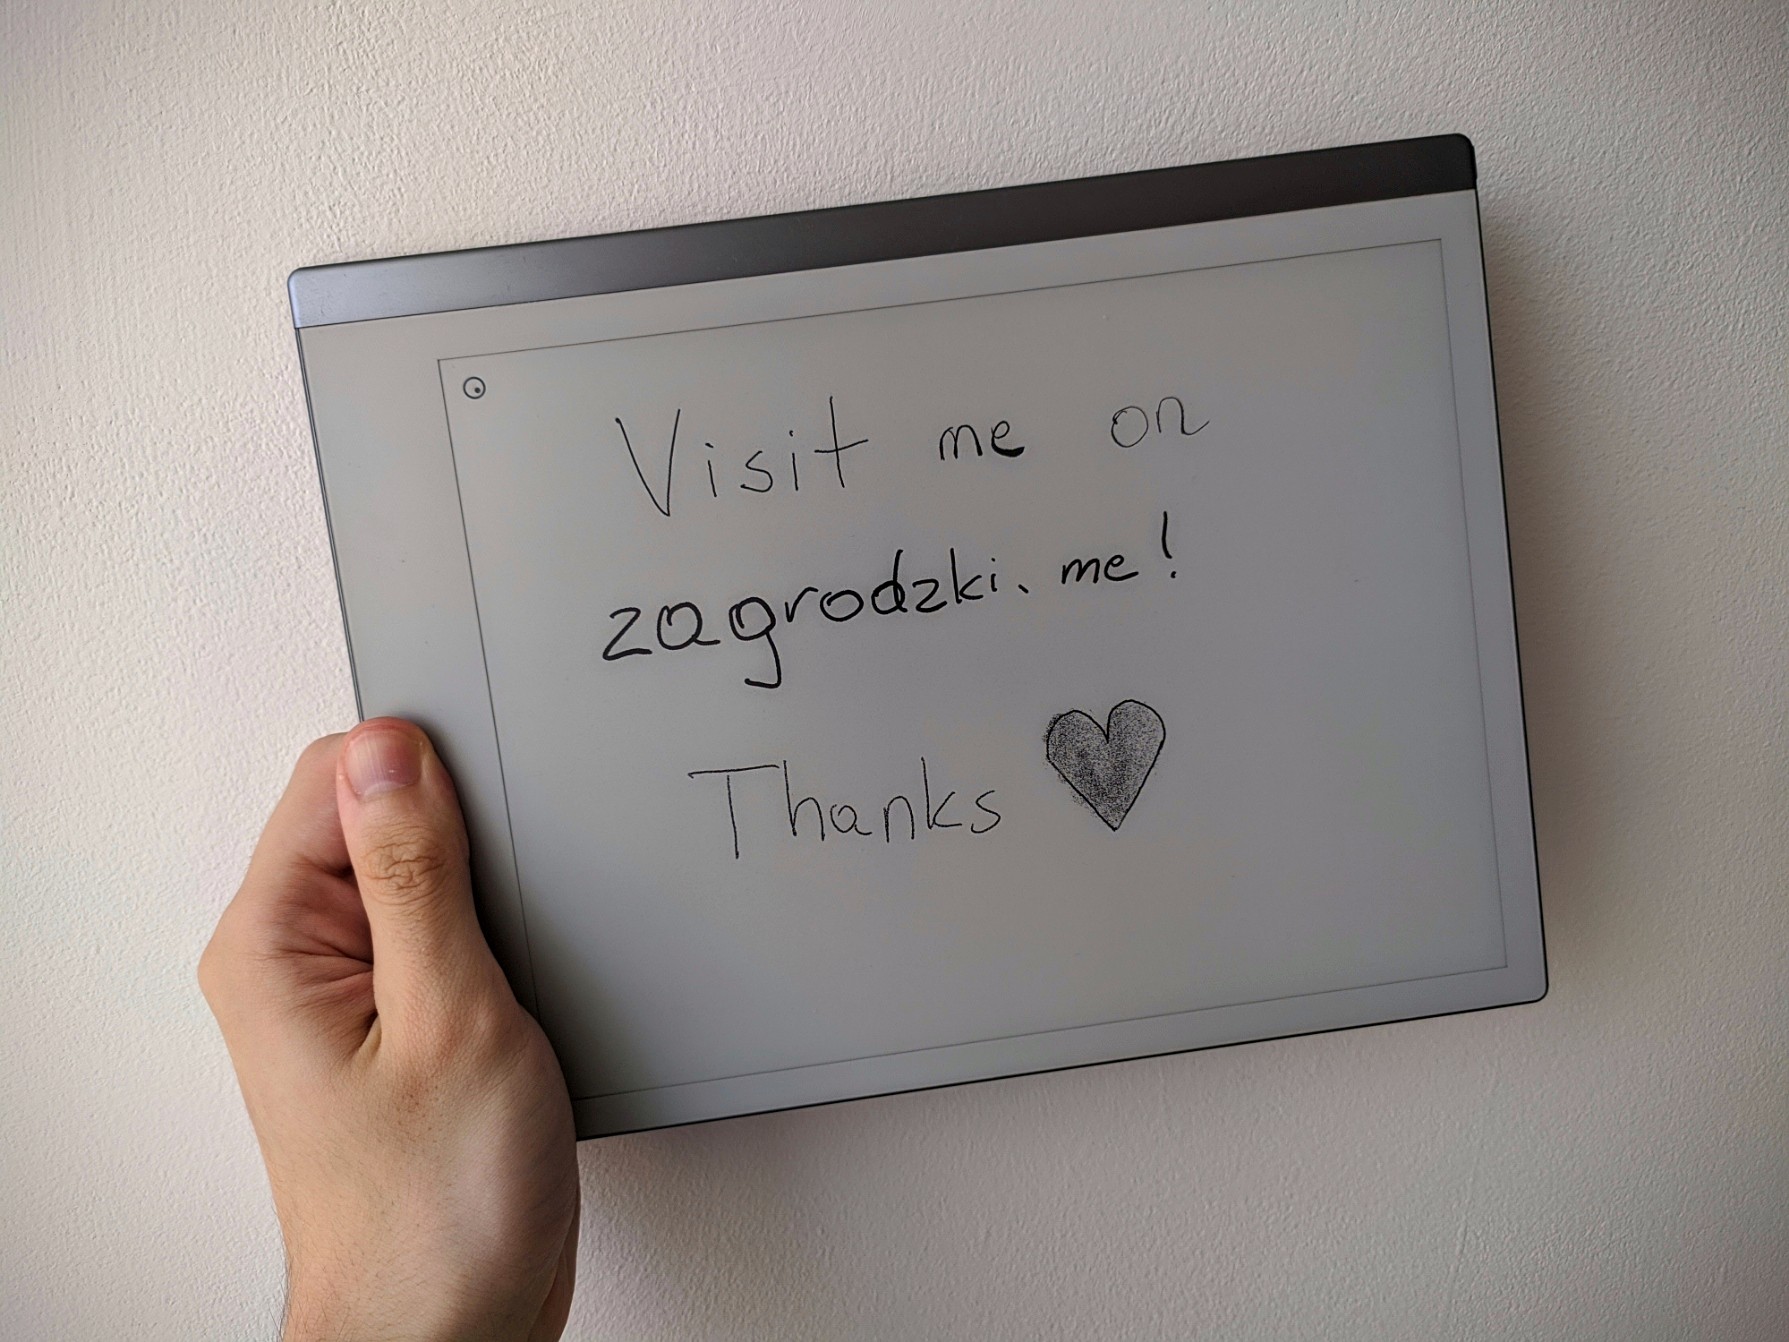 Visit me on
zagrodzki.me!
Thanks